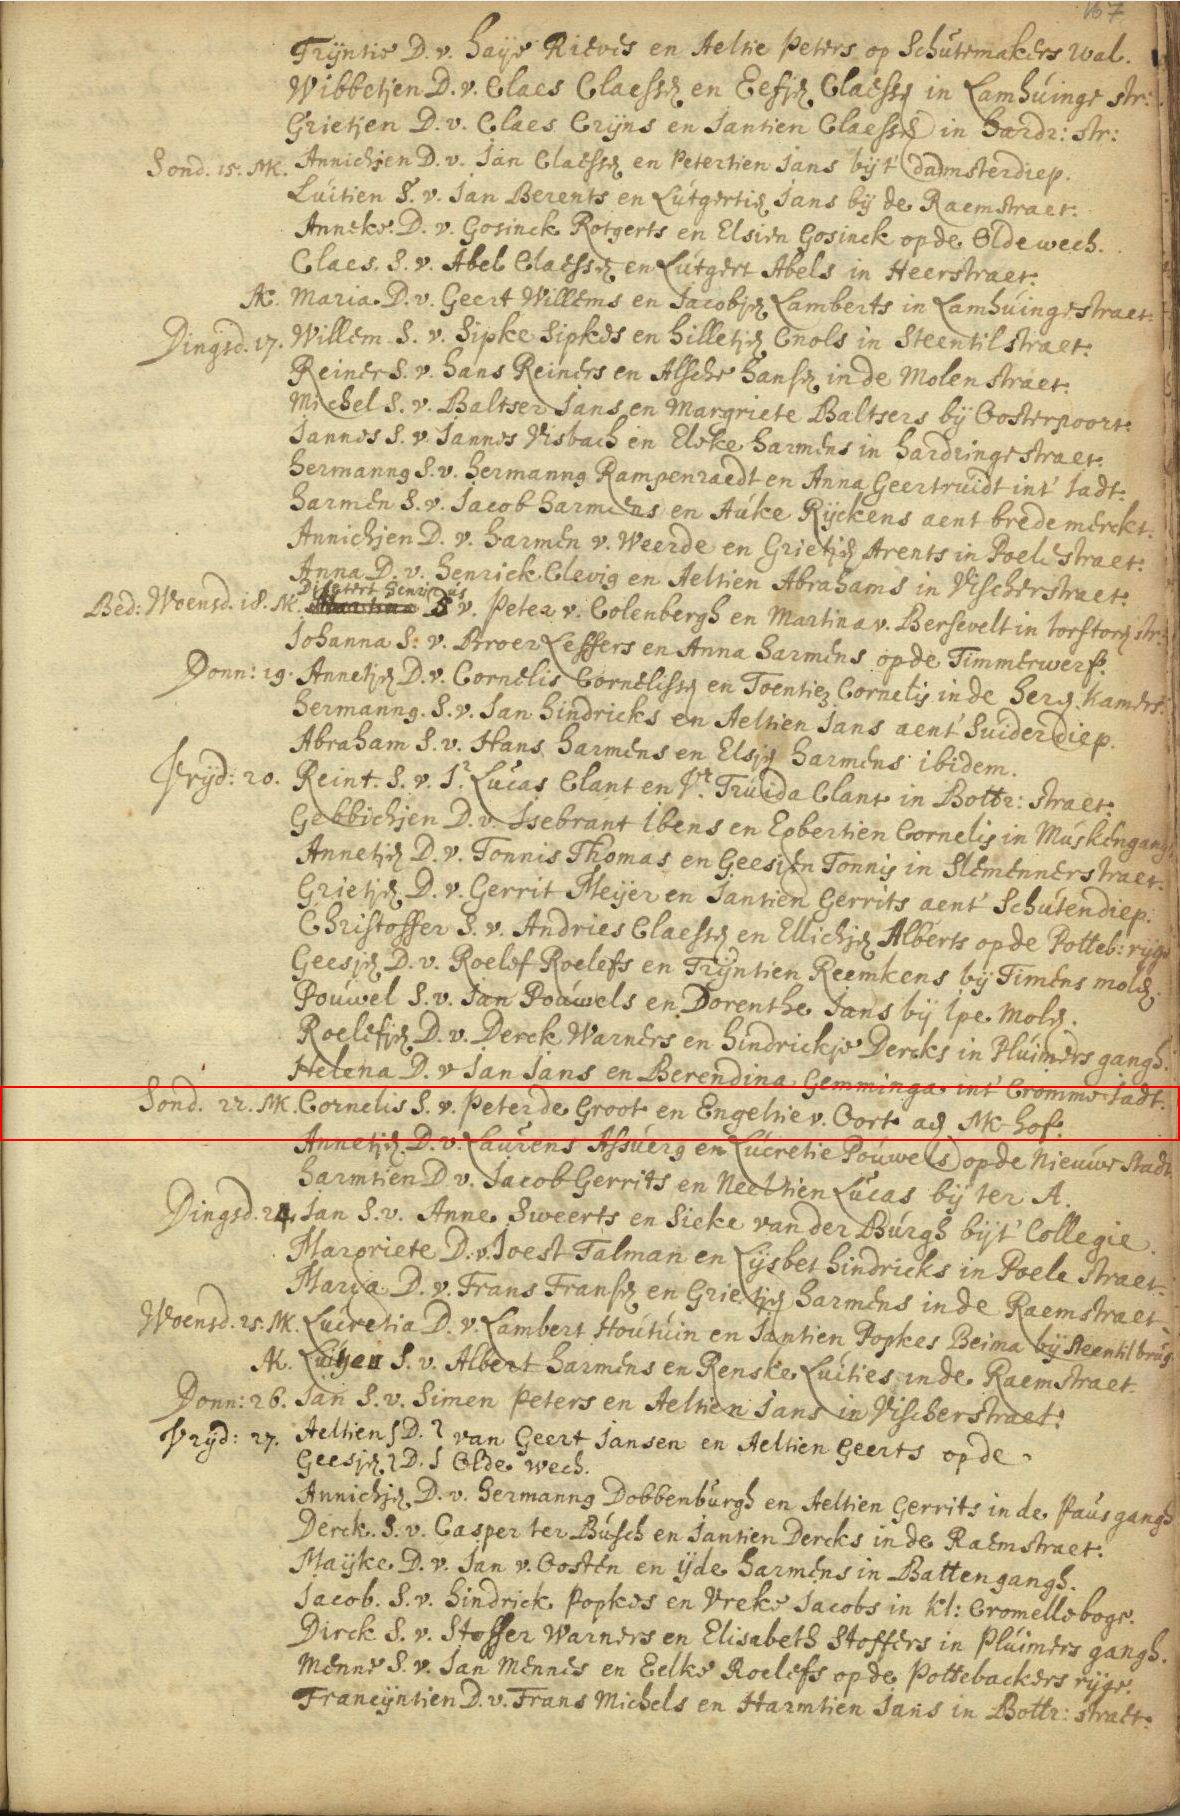 167
Trijntie D. v. Haije Rieves en Aeltie Peters op Schutemakers wal.
Wibbetjen D. v. Claes Claessen en Eefjen Claessen in Lamhuinge str:
Grietjen D. v. Claes Crijns en Jantien Claessen in Hardr: str:
Sond. 15. MK. Annichjen D. v. Jan Claessen en Petertien Jans bijt' damsterdiep.
Luitien S. v. Jan Berents en Lutgertien Jans bij de Raemstraet.
Anneke D. v. Gosinck Rotgerts en Elsien Gosinck op de Oldewech.
Claes. S. v. Abel Claessen en Lutgert Abels in Heerstraet:
AK. Maria D. v. Geert Willems en Jacobjen Lamberts in Lamhuingestraet:
Dingsd. 17. Willem S. v. Sipke Sipkes en Hilletjen Cnols in Steentilstraet:
Reiner S. v. Hans Reiners en Alsche Hansen in de Molenstraet:
Michel S. v. Baltser Jans en Margriete Baltsers bij Oosterpoort:
Jannes S. v. Jannes Visbach en Eleke Harmens in Hardringestraet:
Hermanng S. v. Hermanng Rampenraedt en Anna Geertruidt int' Jadt:
Harmen S. v. Jacob Harmens en Auke Rijckens aent brede merckt.
Annichjen D. v. Harmen v. Weerde en Grietjen Arents in Poelestraet:
Anna D. v. Henrick Clevig en Aeltien Abrahams in Visscherstraet:
Henricus
Bed: Woensd. 18. AK. S v. Peter v. Colenbergh en Martina v. Bersevelt in torstoren str:
Johanna S: v. Broer Leffers en Anna Harmens op de Timmerwerf.
Donn: 19. Annetjen D. v. Cornelis Cornelissen en Toentien Cornelis in de Heren Kamers.
Hermanng. S. v. Jan Hindricks en Aeltien Jans aent' Suiderdiep.
Abraham S. v. Hans Harmens en Elsjen Harmens ibidem.
Vrijd: 20. Reint. S. v. Jr Lucas Clant en Vr. Truida Clant in Bottr: straet:
Gebbichjen D. v. Isebrant Ibens en Egbertien Cornelis in Muskengang
Annetjen D. v. Tonnis Thomas en Geesien Tonnis in Slemennerstraet:
Grietjen D. v. Gerrit Meijer en Jantien Gerrits aent' Schutendiep.
Christoffer S. v. Andries Claessen en Ellichjen Alberts op de Potteb: rijge
Geesjen D. v. Roelef Roelefs en Trijntien Reemkens bij Timens molen.
Pouwel S. v. Jan Pouwels en Dorenthe Jans bij Ipe Molen.
Roelefjen D. v. Derck Warners en Hindrickje Dercks in Pluimers gangh.
Helena D. v Jan Jans en Berendina Gemminga int' Cromme Jadt.
Sond. 22. MK. Cornelis S. v. Peter de Groot en Engeltie v. Oort aen MK-hof:
Annetjen D. v. Laurens Assuerg en Lucretie Pouwels op de Nieuwe Stadt
Harmtien D v. Jacob Gerrits en Neeltien Lucas bij ter A.
Dingsd. 24. Jan S. v. Anne Sweerts en Sieke van der Burgh bijt' Collegie.
Margriete D. v. Joest Talman en Lijsbet Hindricks in Poele straet:
Maria D. v. Frans Fransen en Grietjen Harmens in de Raemstraet.
Woensd. 25. MK. Lucretia D. v. Lambert Houtuin en Jantien Popkes Beima bij Steentilbrug.
AK. Luitjen S. v. Albert Harmens en Renske Luities in de Raemstraet.
Donn: 26. Jan S. v. Simen Peters en Aeltien Jans in Visscherstraet:
Vrijd: 27. Aeltien D. van Geert Jansen en Aeltien Geerts op de
Geesjen D. Olde wech.
Annichjen D. v. Hermanng Dobbenburgh en Aeltien Gerrits in de Pausgangh
Derck. S. v. Casper ter Busch en Jantien Dercks in de Raemstraet.
Maijke D. v. Jan v. Oosten en Yde Harmens in Battengangh.
Jacob. S. v. Hindrick Popkes en Vreke Jacobs in kl: Cromelleboge.
Dirck S. v. Stoffer Warners en Elisabeth Stoffers in Pluimers gangh.
Menne S. v. Jan Mennes en Eelke Roelefs op de Pottebackers rijge.
Francijntien D. v. Frans Michels en Harmtien Jans in Bottr: straet: